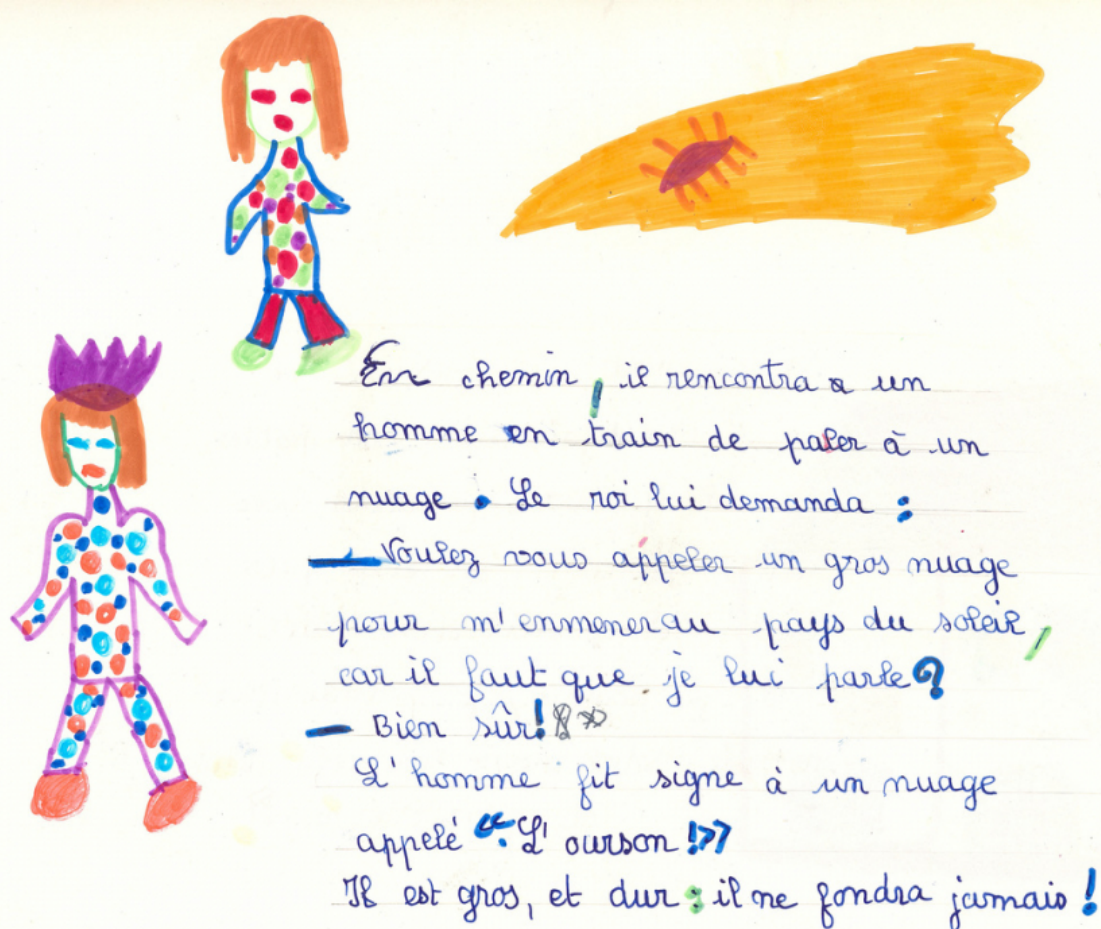 En chemin, il rencontra un
homme en train de paler à un
nuage. Le roi lui demanda :
— Voulez vous appeler un gros nuage
pour m'enmener au pays du soleil,
car il faut que je lui parle?
— Bien sûr!
L'homme fit signe à un nuage
appelé "L'ourson!"
Il est gros, et dur : il ne fondra jamais!